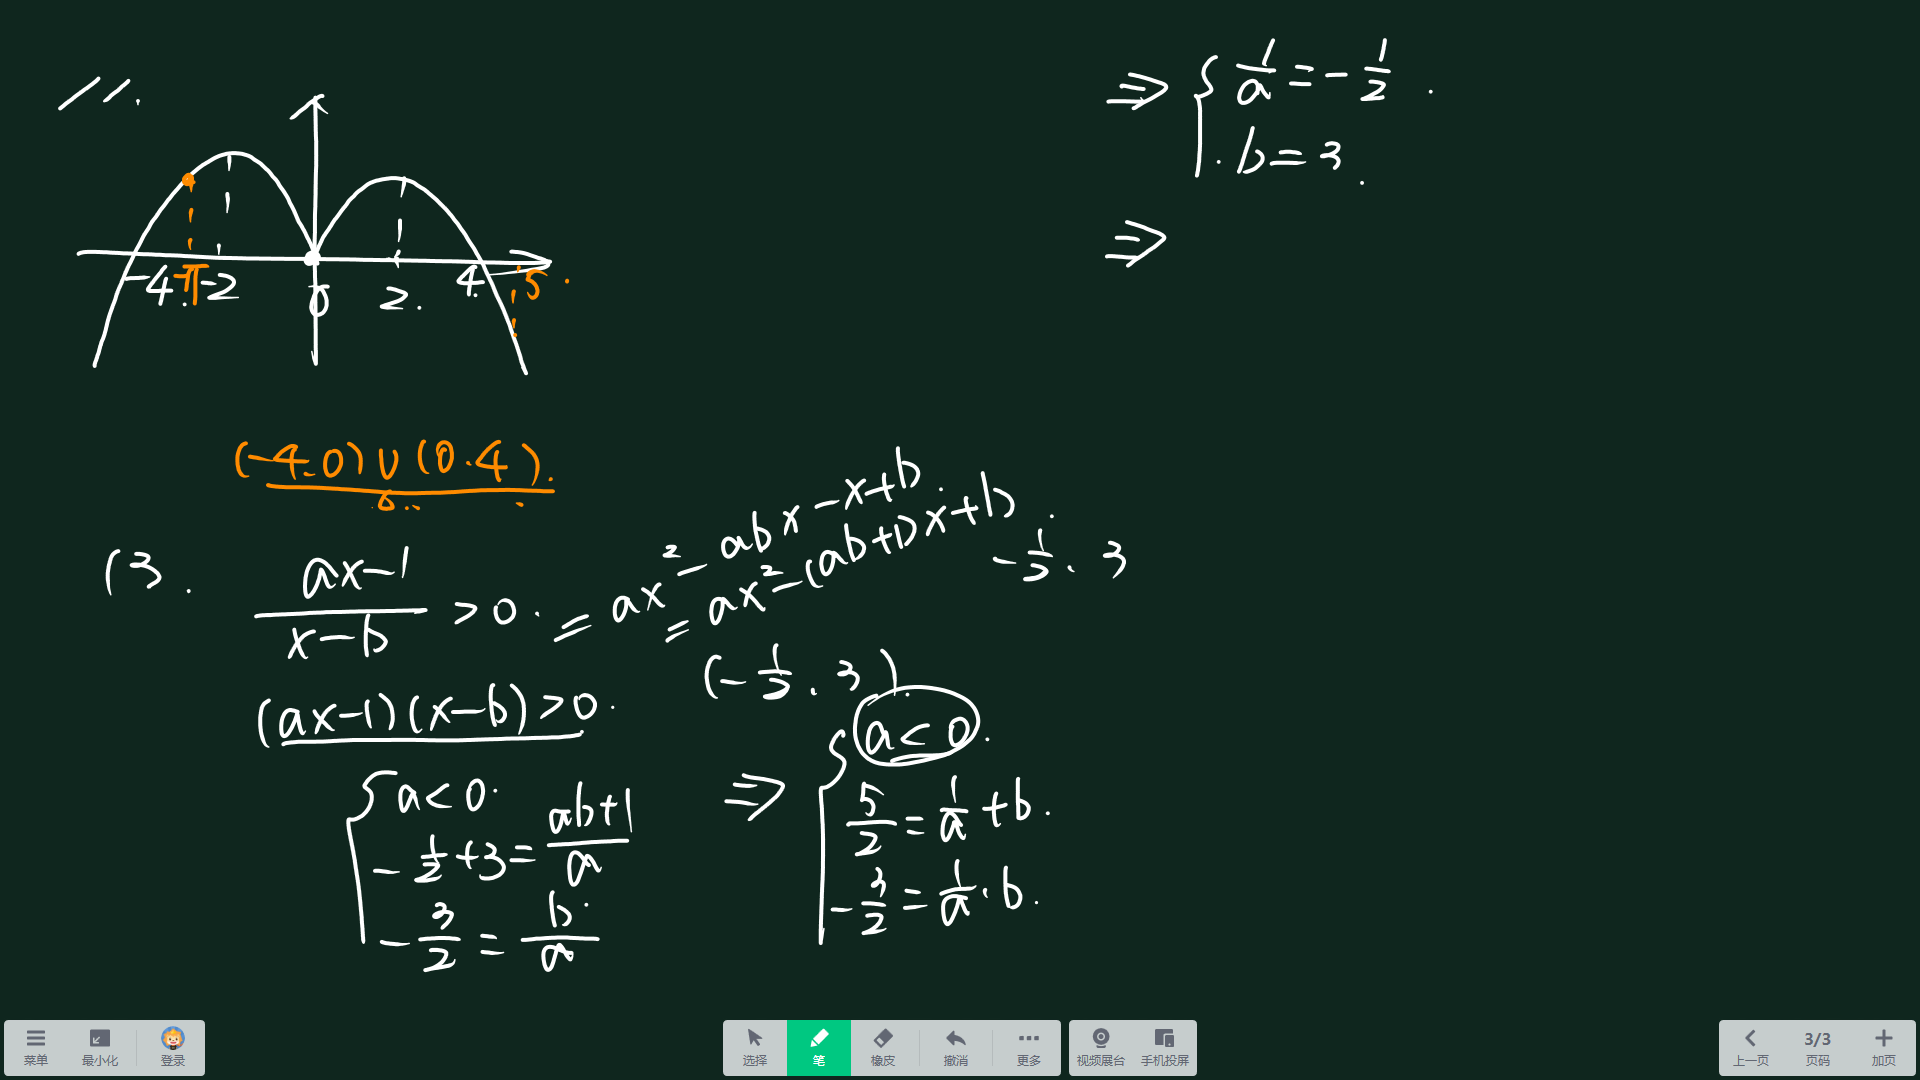 11.
-4. -π -2 0 2. 4. 5.
(-4.0)∪(0.4).
13.
(ax-1)/(x-b) > 0. = ax² - abx - x + b.
= ax² - (ab+1)x + b.
-1/2. 3
(ax-1)(x-b) > 0.
(-1/2. 3).
{ a < 0.
-1/2 + 3 = (ab+1)/a
-3/2 = b/a
⇒ { a < 0.
5/2 = 1/a + b.
-3/2 = 1/a · b.
⇒ { 1/a = -1/2.
b = 3.
⇒
菜单 最小化 登录
选择 笔 橡皮 撤消 更多
视频展台 手机投屏
3/3
上一页 页码 加页